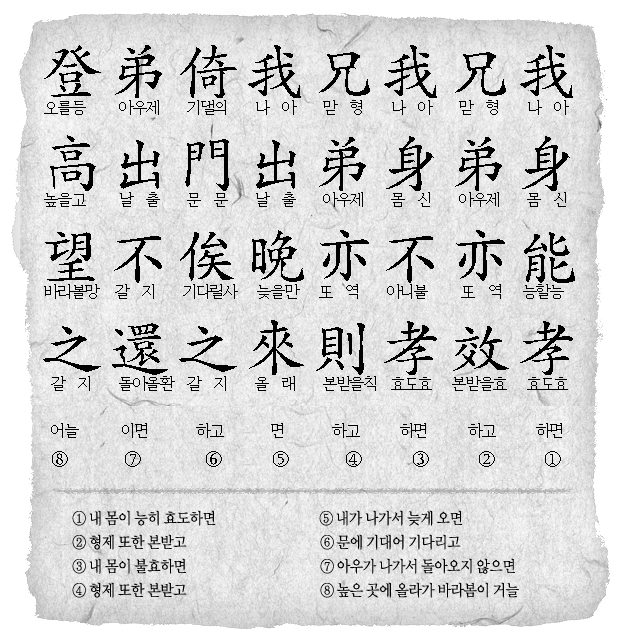 我 나 아 身 몸 신 能 능할능 孝 효도효 하면 ①
兄 맏 형 弟 아우제 亦 또 역 效 본받을효 하고 ②
我 나 아 身 몸 신 不 아니불 孝 효도효 하면 ③
兄 맏 형 弟 아우제 亦 또 역 則 본받을칙 하고 ④
我 나 아 出 날 출 晩 늦을만 來 올 래 면 ⑤
倚 기댈의 門 문 문 俟 기다릴사 之 갈 지 하고 ⑥
弟 아우제 出 날 출 不 갈 지 還 돌아올환 이면 ⑦
登 오를등 高 높을고 望 바라볼망 之 갈 지 어늘 ⑧
① 내 몸이 능히 효도하면
② 형제 또한 본받고
③ 내 몸이 불효하면
④ 형제 또한 본받고
⑤ 내가 나가서 늦게 오면
⑥ 문에 기대어 기다리고
⑦ 아우가 나가서 돌아오지 않으면
⑧ 높은 곳에 올라가 바라봄이 거늘